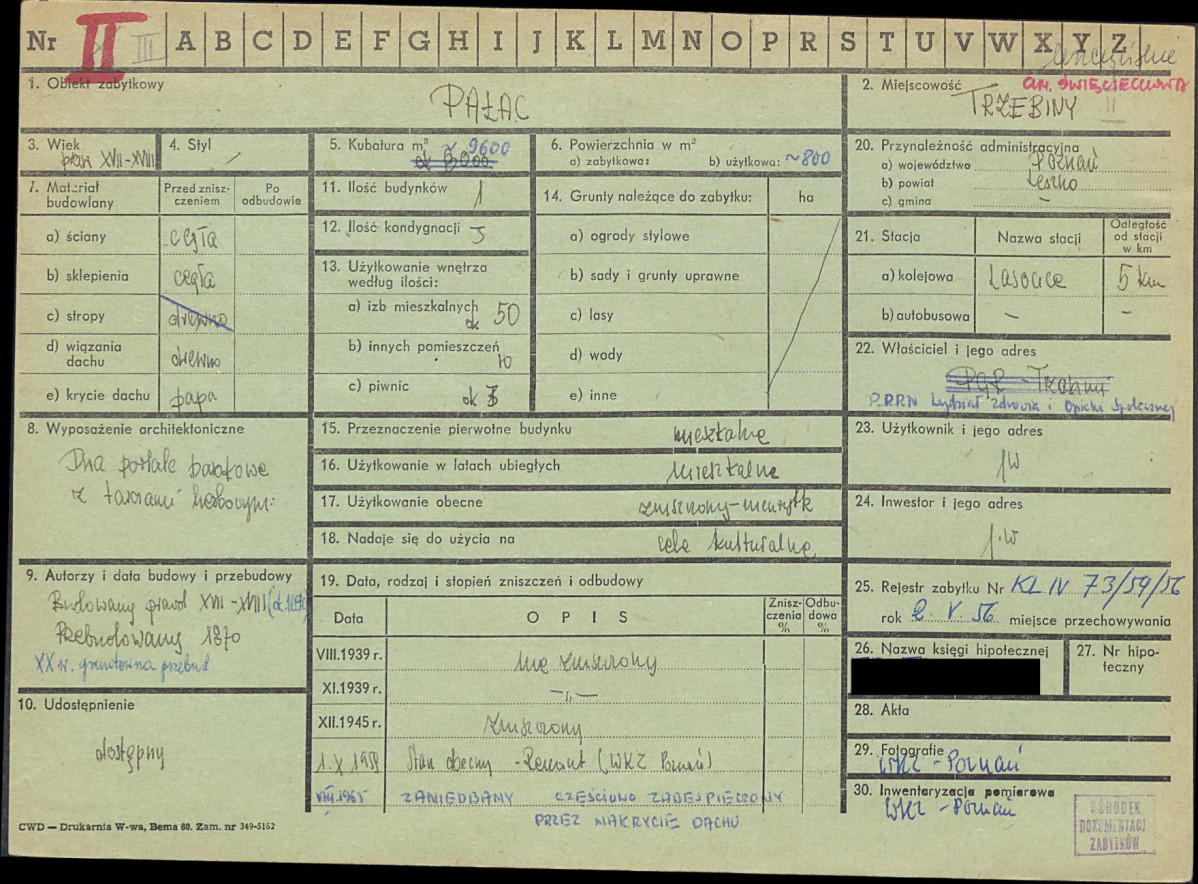 Nr II III A B C D E F G H I J K L M N O P R S T U V W X Y Z
leszczyńskie
GM. ŚWIĘCIECHOWA
1. Obiekt zabytkowy
PAŁAC
2. Miejscowość
TRZEBINY II
3. Wiek
przeł. XVII-XVIII
4. Styl
5. Kubatura m³ ~ 9600
ok 5000
6. Powierzchnia w m²
a) zabytkowa: b) użytkowa: ~800
20. Przynależność administracyjna
a) województwo Poznań
b) powiat Leszno
c) gmina –
7. Materiał budowlany
Przed zniszczeniem
Po odbudowie
a) ściany cegła
b) sklepienia cegła
c) stropy drewno
d) wiązania dachu drewno
e) krycie dachu papa
11. Ilość budynków 1
12. Ilość kondygnacji 3
13. Użytkowanie wnętrza według ilości:
a) izb mieszkalnych ok 50
b) innych pomieszczeń 10
c) piwnic ok
14. Grunty należące do zabytku: ha
a) ogrody stylowe
b) sady i grunty uprawne
c) lasy
d) wody
e) inne
21. Stacja
Nazwa stacji
Odległość od stacji w km
a) kolejowa Lasocice 5 km
b) autobusowa – –
22. Właściciel i jego adres
PGR -
P.P.R.N Wydział Zdrowia i Opieki Społecznej
8. Wyposażenie architektoniczne
Dwa portale barokowe
z tarczami herbowymi
15. Przeznaczenie pierwotne budynku mieszkalne
16. Użytkowanie w latach ubiegłych mieszkalne
17. Użytkowanie obecne zniszczony-nieużytk
18. Nadaje się do użycia na cele kulturalne
23. Użytkownik i jego adres
jw
24. Inwestor i jego adres
j.w
9. Autorzy i data budowy i przebudowy
Budowany XVII-XVIII
Przebudowany 1870
XX w. gruntowna przebud.
10. Udostępnienie
dostępny
19. Data, rodzaj i stopień zniszczeń i odbudowy
Data
OPIS
Zniszczenia %
Odbudowa %
VIII.1939 r. nie zniszczony
XI.1939 r. –„–
XII.1945 r. Zniszczony
1.X 1958 Stan obecny - Remont (WKZ Poznań)
VIII.1965 ZANIEDBANY CZĘŚCIOWO ZABESPIECZONY
PRZEZ NAKRYCIE DACHU
25. Rejestr zabytku Nr KL IV 73/59/56
rok 2. V 56 miejsce przechowywania
26. Nazwa księgi hipotecznej
27. Nr hipoteczny
28. Akta
29. Fotografie
WKZ - Poznań
30. Inwentaryzacja pomiarowa
WKZ - Poznań
OŚRODEK
DOKUMENTACJI
ZABYTKÓW
CWD — Drukarnia W-wa, Bema 60. Zam. nr 349-5162